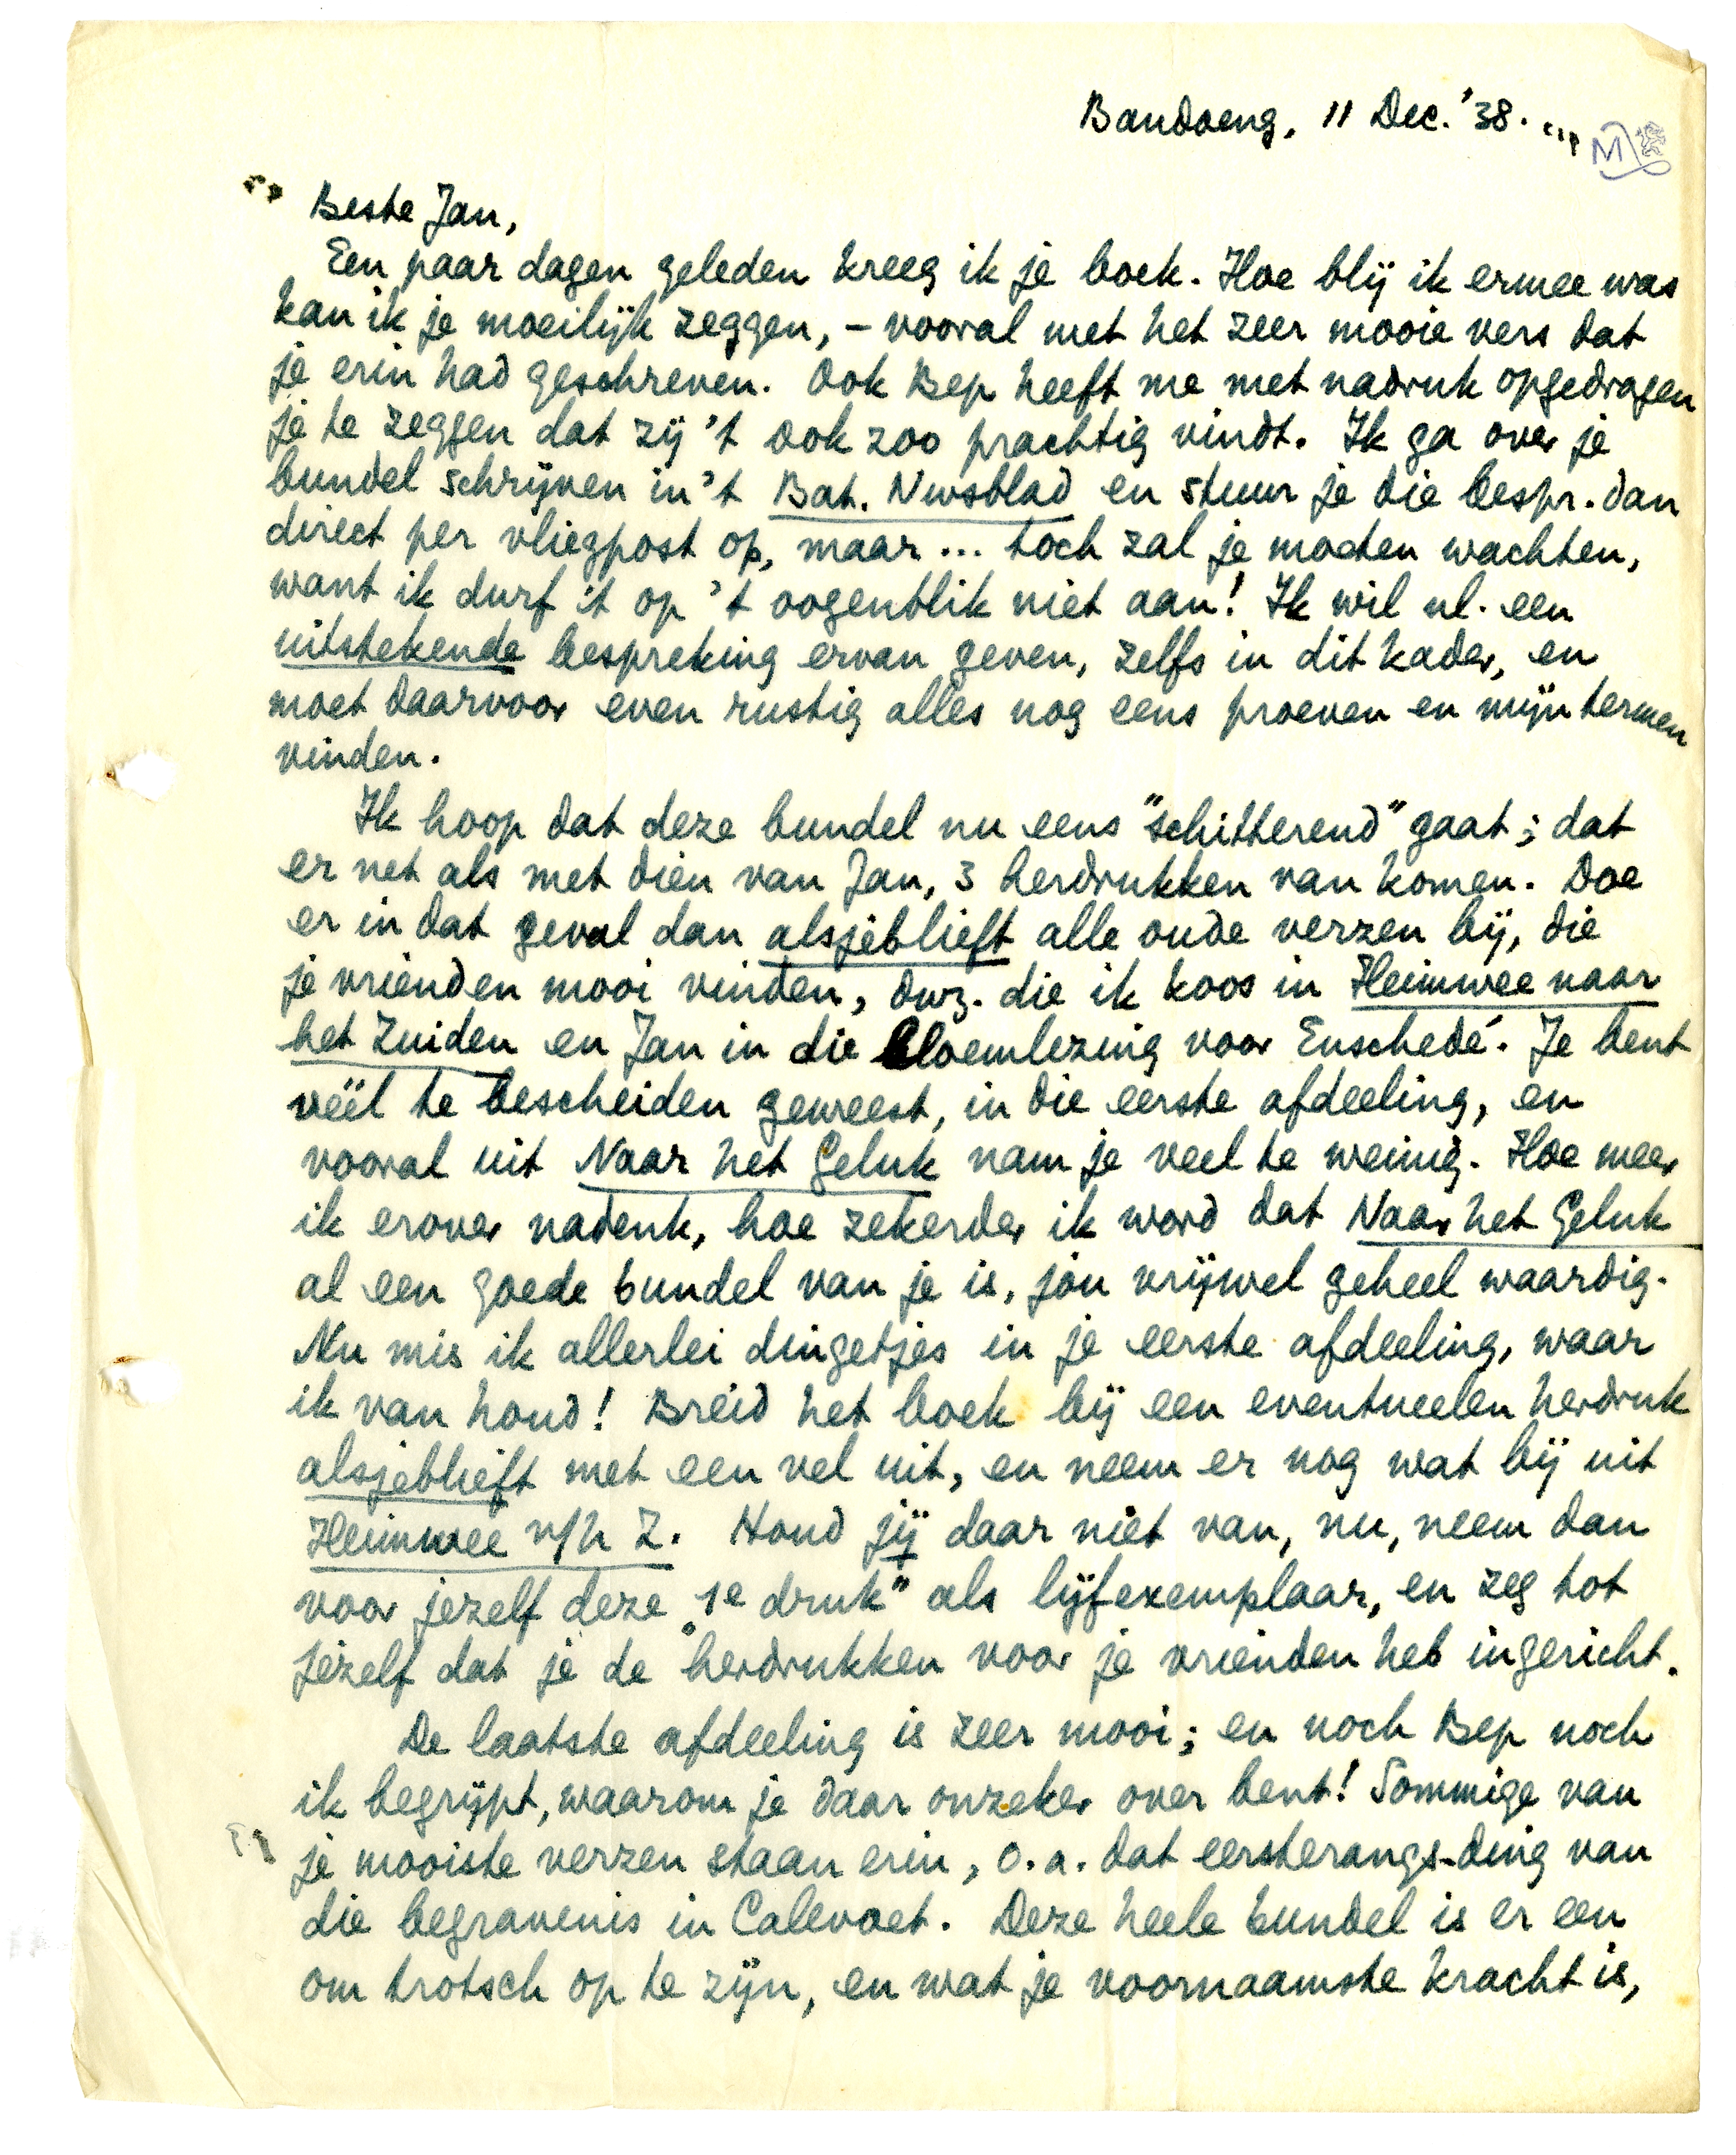 Bandoeng, 11 Dec. '38.
M
Beste Jan,
Een paar dagen geleden kreeg ik je boek. Hoe blij ik ermee was
kan ik je moeilijk zeggen, – vooral met het zeer mooie vers dat
je erin had geschreven. Ook Bep heeft me met nadruk opgedragen
je te zeggen dat zij 't ook zoo prachtig vindt. Ik ga over je
bundel schrijven in 't Bat. Nwsblad en stuur je die bespr. dan
direct per vliegpost op, maar ... toch zal je moeten wachten,
want ik durf 't op 't oogenblik niet aan! Ik wil nl. een
uitstekende bespreking ervan geven, zelfs in dit kader, en
moet daarvoor even rustig alles nog eens proeven en mijn termen
vinden.
Ik hoop dat deze bundel nu eens "schitterend" gaat; dat
er net als met dien van Jan, 3 herdrukken van komen. Doe
er in dat geval dan alsjeblieft alle oude verzen bij, die
je vrienden mooi vinden, dwz. die ik koos in Heimwee naar
het Zuiden en Jan in die bloemlezing voor Enschedé. Je bent
véél te bescheiden geweest, in die eerste afdeeling, en
vooral uit Naar het Geluk nam je veel te weinig. Hoe meer
ik erover nadenk, hoe zekerder ik word dat Naar het Geluk
al een goede bundel van je is, jou vrijwel geheel waardig.
Nu mis ik allerlei dingetjes in je eerste afdeeling, waar
ik van houd! Breid het boek bij een eventueelen herdruk
alsjeblieft met een vel uit, en neem er nog wat bij uit
Heimwee n/h Z. Houd jij daar niet van, nu, neem dan
voor jezelf deze "1e druk" als lijfexemplaar, en zeg tot
jezelf dat je de herdrukken voor je vrienden heb ingericht.
De laatste afdeeling is zeer mooi; en noch Bep noch
ik begrijpt, waarom je daar onzeker over bent! Sommige van
je mooiste verzen staan erin, o.a. dat eersterangs-ding van
die begravenis in Calevoet. Deze heele bundel is er een
om trotsch op te zijn, en wat je voornaamste kracht is,